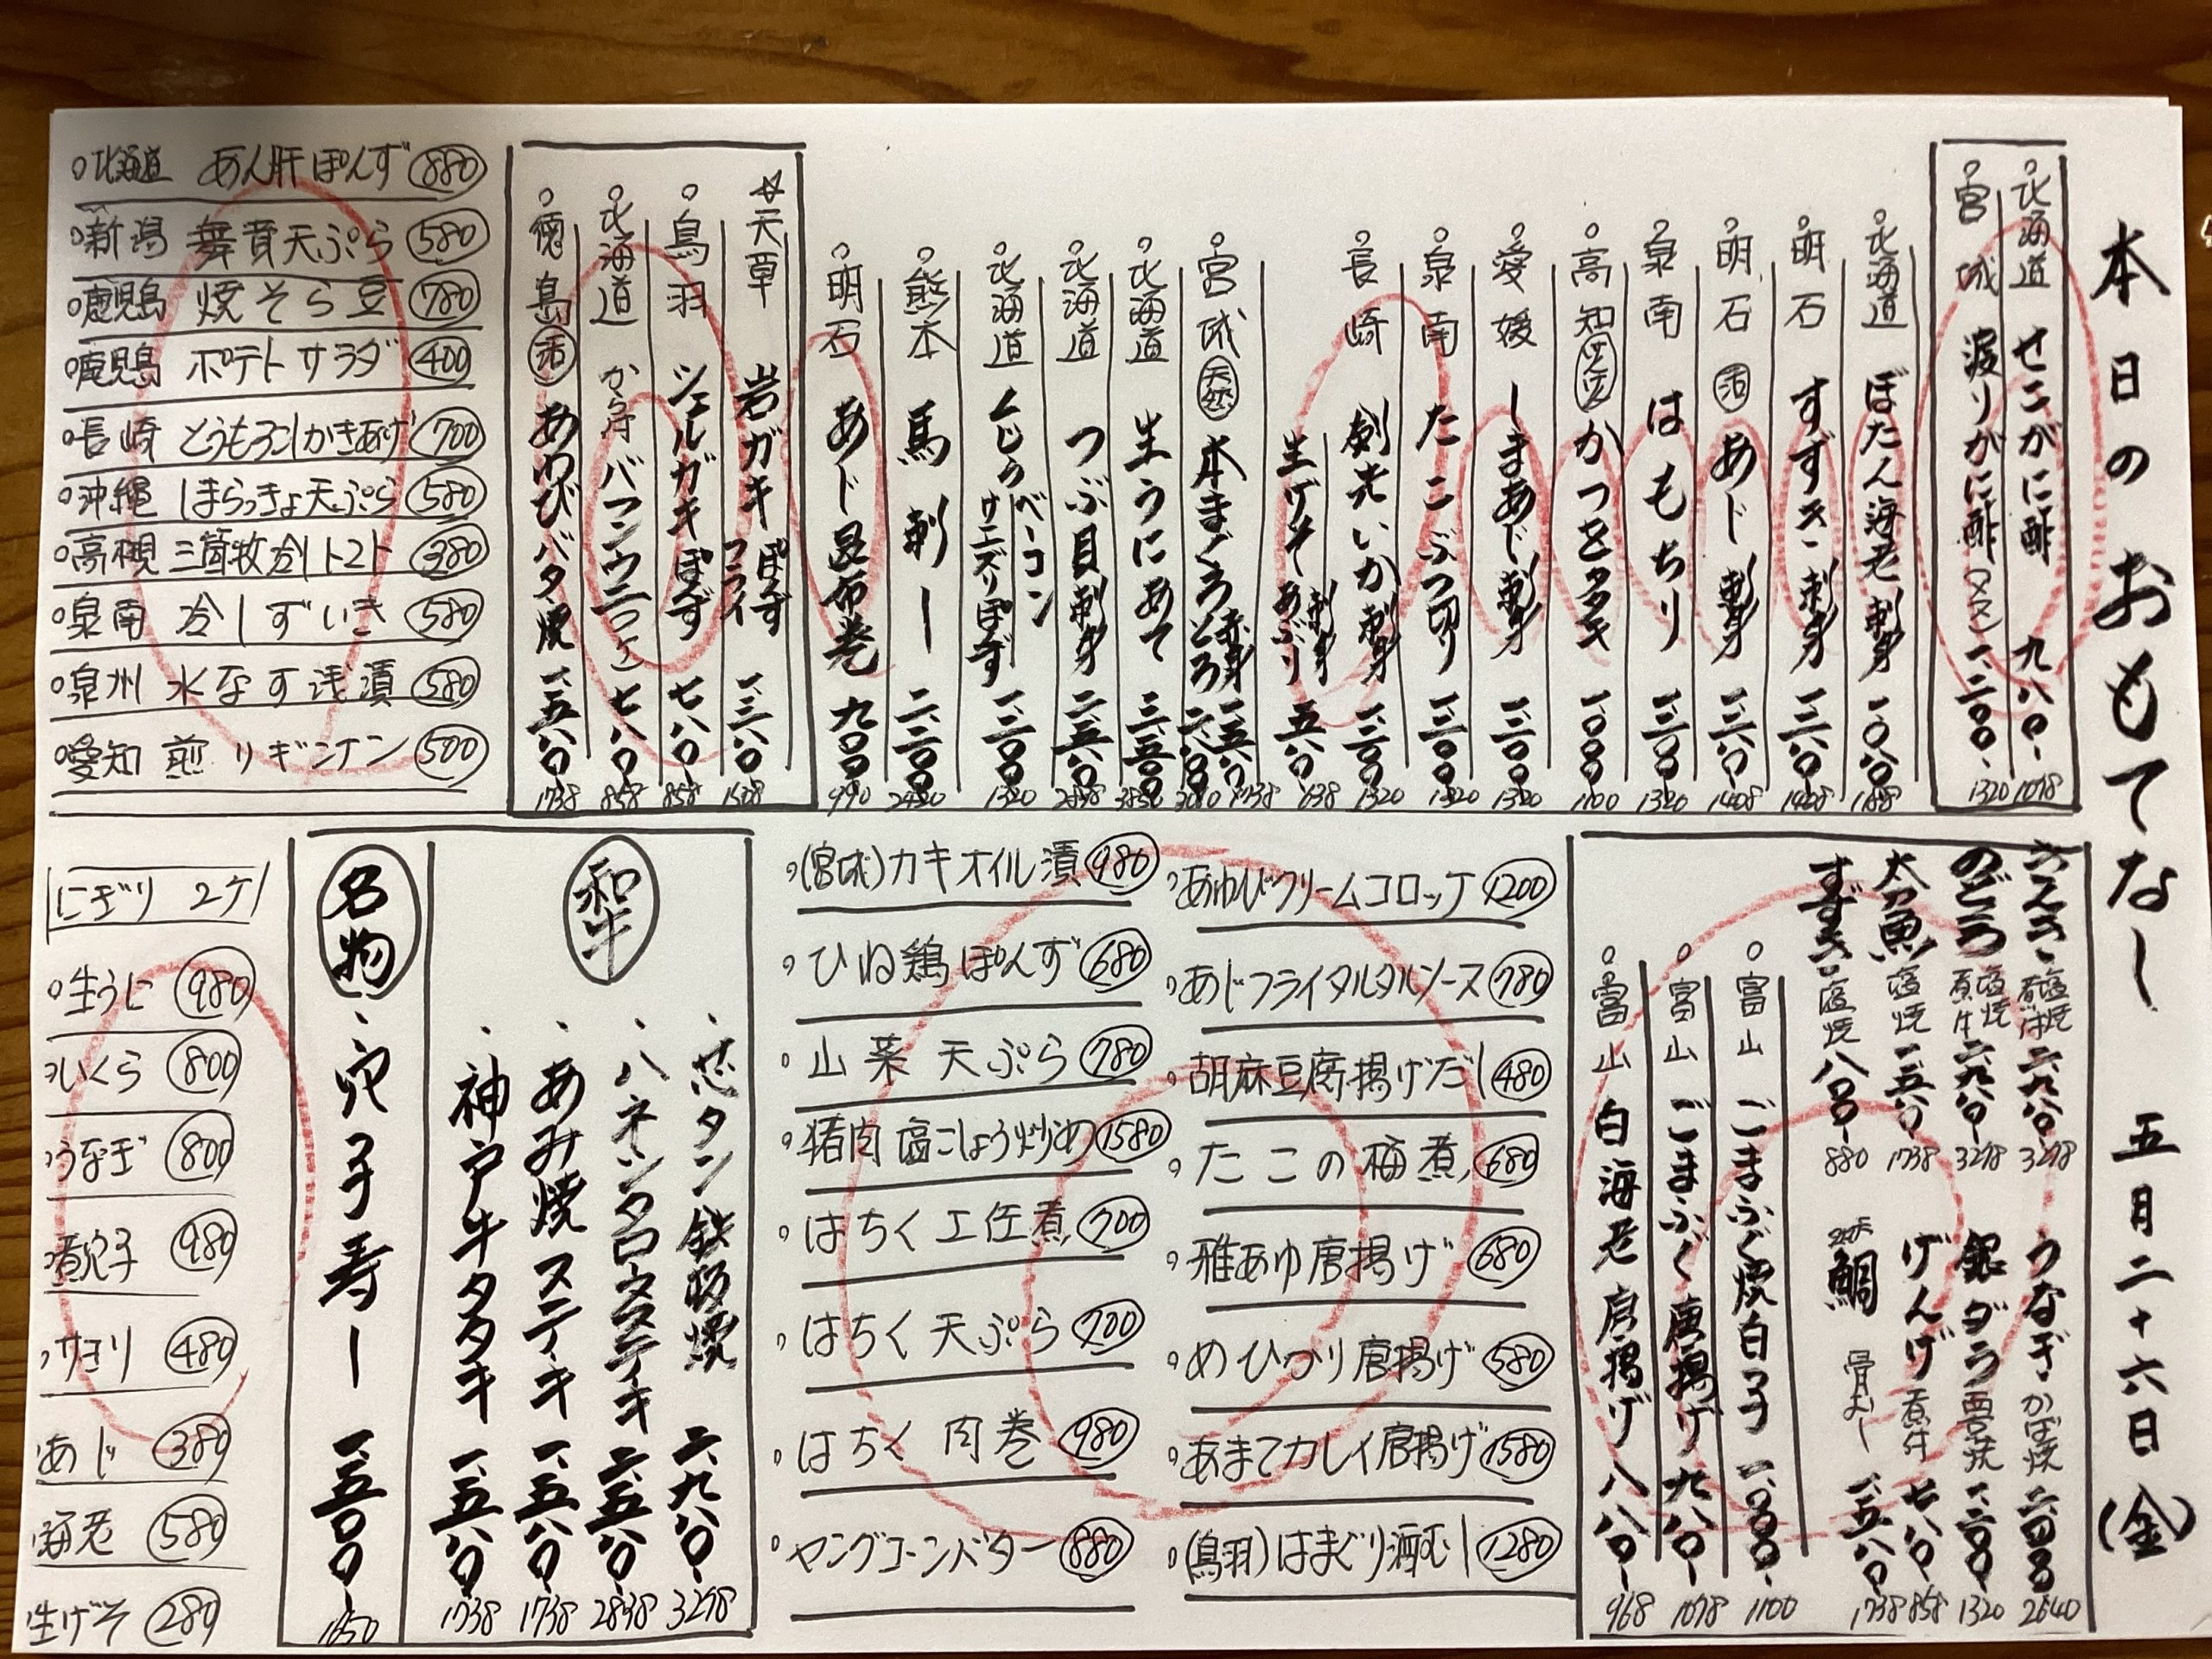 本日のおもてなし 五月二十六日(金)
北海道 せこがに酢 九八〇 1078
宮城 渡りがに酢(メス) 一、二〇〇 1320
北海道 ぼたん海老 刺身 一、〇八〇 1188
明石 すずき 刺身 一、二八〇 1408
明石 活 あじ 刺身 一、二八〇 1408
泉南 はもちり 一、二〇〇 1320
高知 かつをタタキ 一、〇〇〇 1100
愛媛 しまあじ 刺身 一、二〇〇 1320
泉南 たこぶつ切り 一、二〇〇 1320
長崎 剣先いか 刺身 一、二〇〇 1320
生げそ 刺身 あぶり 五八〇 638
宮城 天然 本まぐろ 赤身 一、五八〇 1738
とろ 二、八〇〇 3080
北海道 生うにあて 三、五〇〇 3850
北海道 つぶ貝 刺身 二、五八〇 2838
北海道 くじら ベーコン サエズリぽんず 一、二〇〇 1320
熊本 馬刺し 二、二〇〇 2420
明石 あじ昆布巻 九〇〇 990
☆天草 岩ガキ ぽんず フライ 一、三八〇 1518
鳥羽 シェルガキぽんず 七八〇 858
北海道 から付 バフンウニ(1コ) 七八〇 858
徳島 活 あわびバタ焼 一、五八〇 1738
北海道 あん肝ぽんず 880
新潟 舞茸天ぷら 580
鹿児島 焼そら豆 780
鹿児島 ポテトサラダ 400
長崎 とうもろこしかきあげ 700
沖縄 しまらっきょ天ぷら 580
高槻 三箇牧冷しトマト 380
泉南 冷しずいき 580
泉州 水なす浅漬 580
愛知 煎りギンナン 500
塩焼 煮付 二、九八〇 3278
のどぐろ 塩焼 煮付 二、九八〇 3278
太刀魚 塩焼 一、五八〇 1738
すずき 塩焼 八〇〇 880
うなぎ かば焼 二、四〇〇 2640
銀ダラ 西京焼 一、二〇〇 1320
げんげ 煮付 七八〇 858
鯛 骨むし 一、五八〇 1738
富山 ごまふぐ焼白子 一、〇〇〇 1100
富山 ごまふぐ 唐揚げ 九八〇 1078
富山 白海老 唐揚げ 八八〇 968
あわびクリームコロッケ 1200
あじフライタルタルソース 780
胡麻豆腐揚げだし 480
たこの梅煮 680
稚あゆ唐揚げ 680
めひかり唐揚げ 580
あまてカレイ唐揚げ 1580
(鳥羽)はまぐり酒むし 1280
(宮城)カキオイル漬 980
ひね鶏ぽんず 680
山菜天ぷら 780
猪肉 塩こしょう炒め 1580
はちく 土佐煮 700
はちく 天ぷら 700
はちく 肉巻 980
ヤングコーンバター 880
和牛
芯タン鉄板焼 二、九八〇 3278
ハネシタロースステーキ 二、五八〇 2838
あみ焼ステーキ 一、五八〇 1738
神戸牛タタキ 一、五八〇 1738
名物
穴子寿し 一、五〇〇 1650
にぎり 2ケ
生うに 980
いくら 800
うなぎ 800
煮穴子 980
サヨリ 480
あじ 380
海老 580
生げそ 280